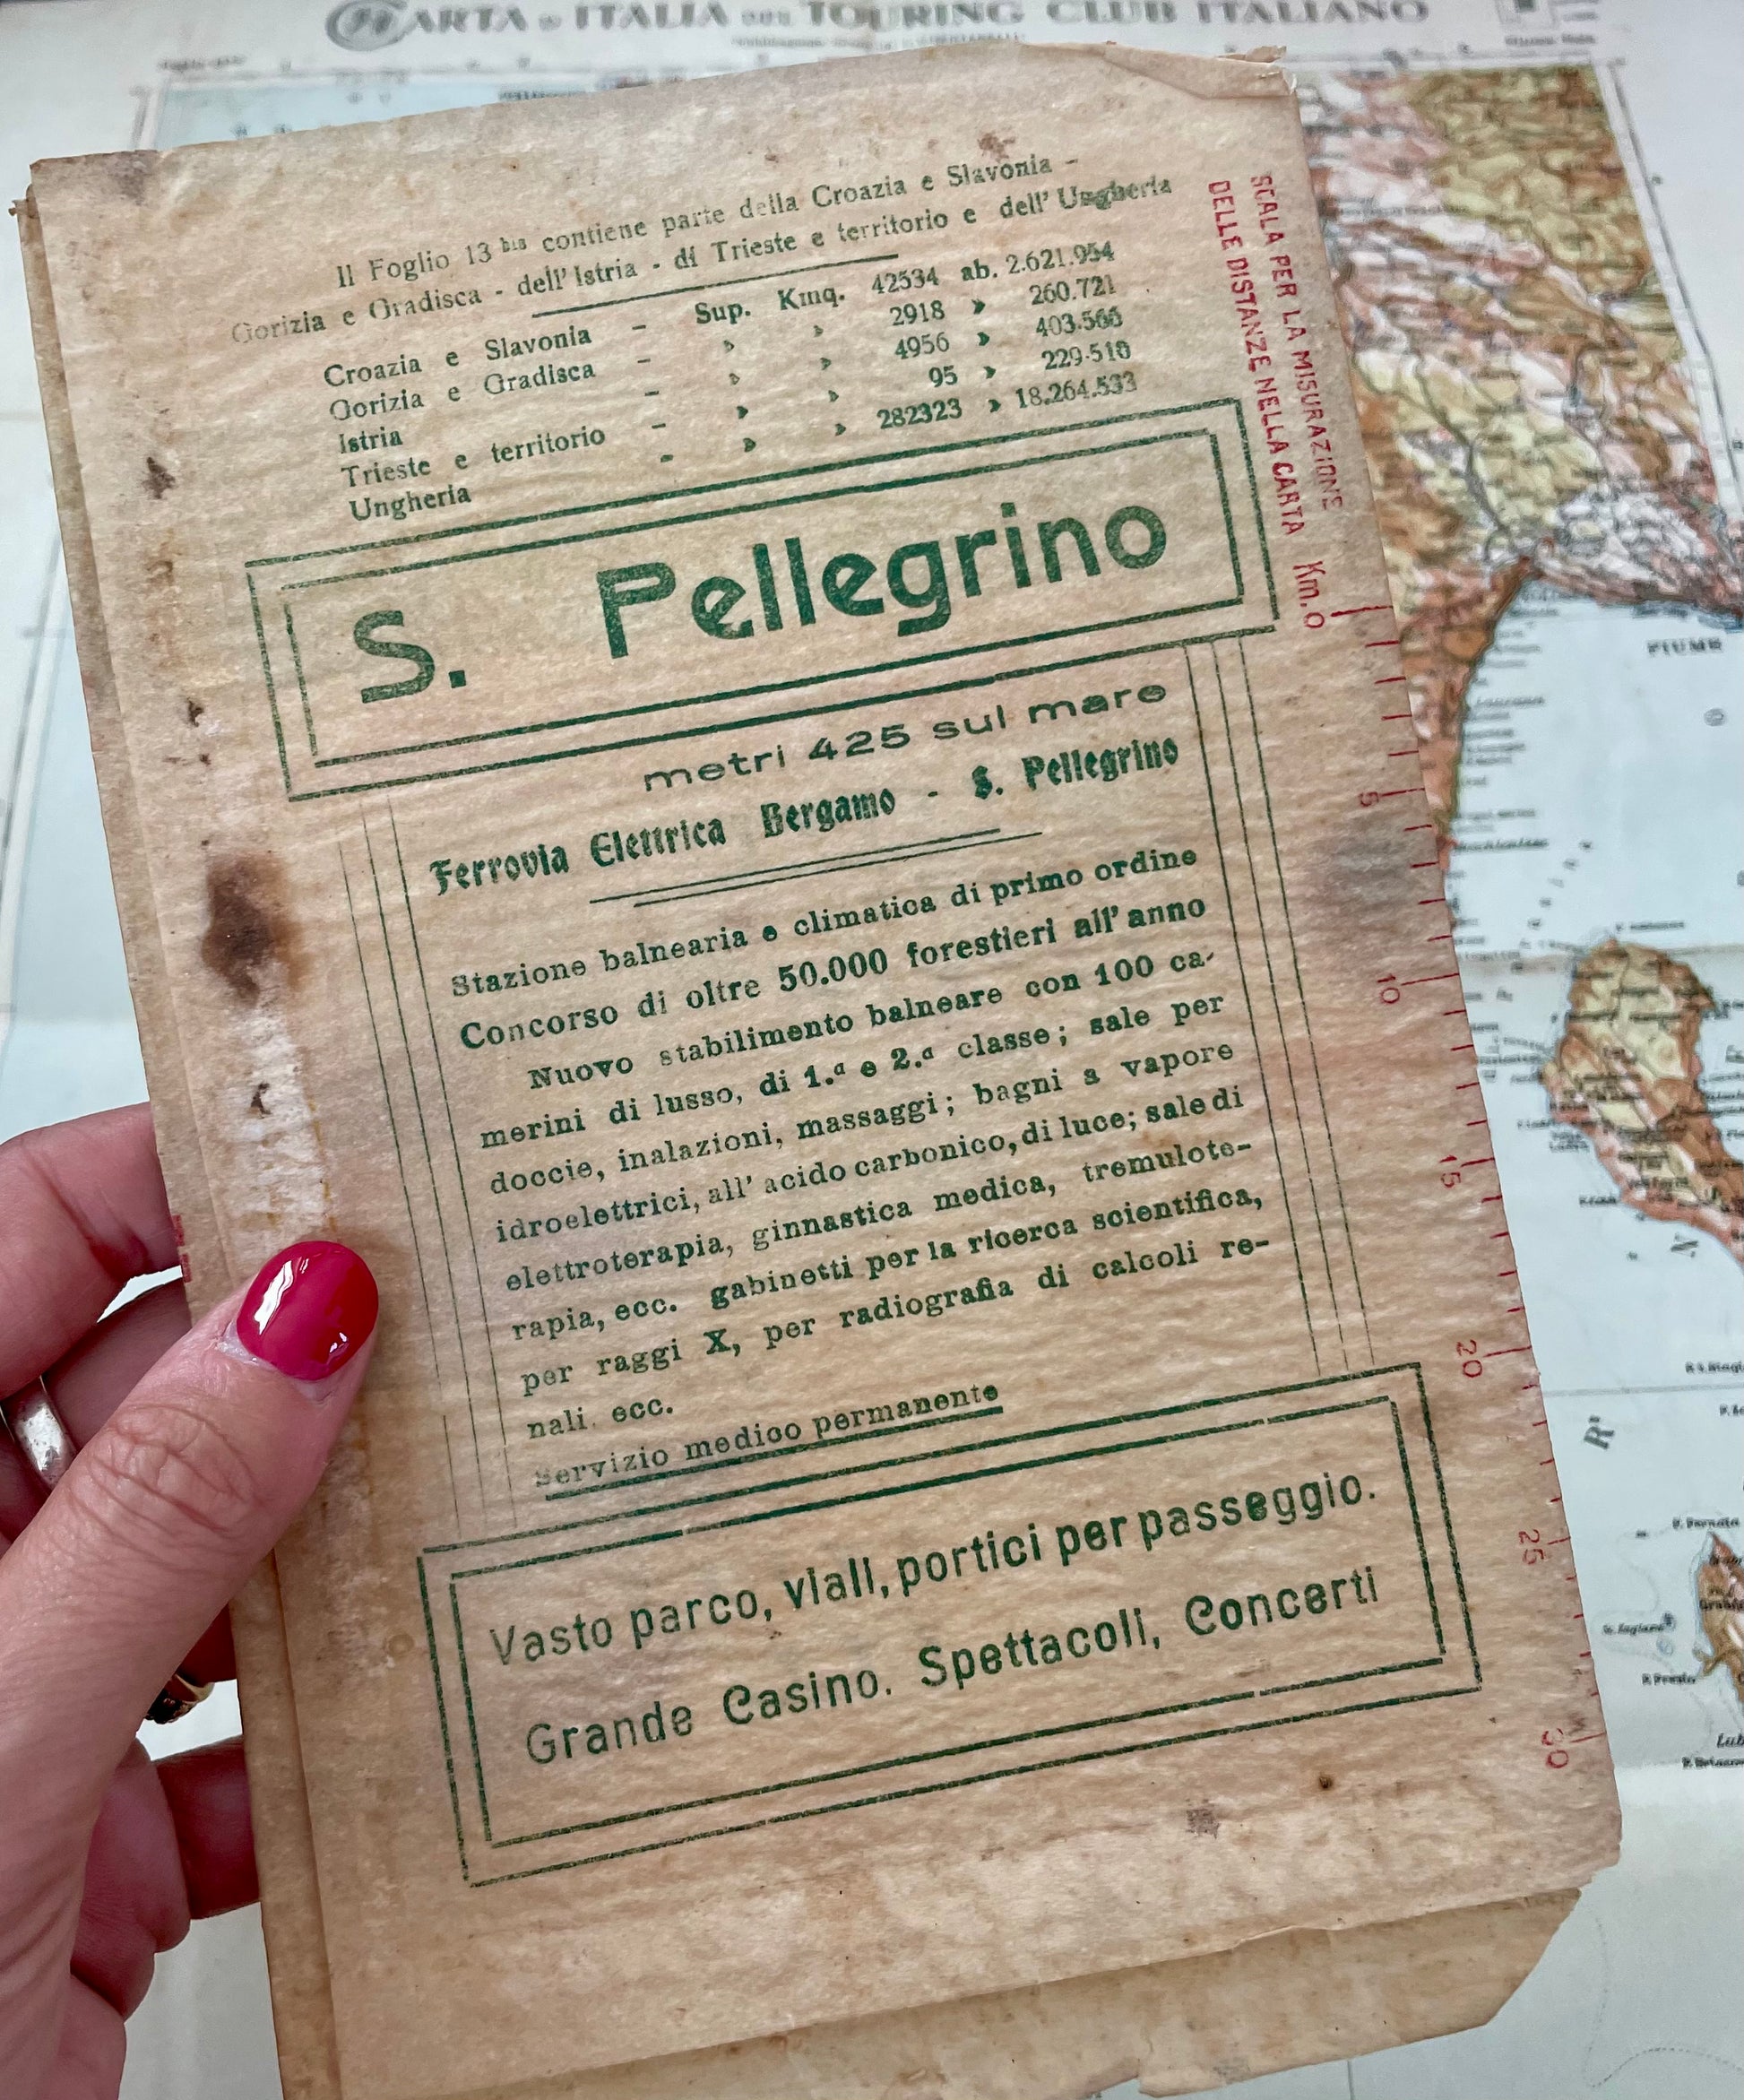 CARTA D'ITALIA DEL TOURING CLUB ITALIANO
Il Foglio 13 bis contiene parte della Croazia e Slavonia -
Gorizia e Gradisca - dell'Istria - di Trieste e territorio e dell'Ungheria
Croazia e Slavonia - Sup. Kmq. 42534 ab. 2.621.954
Gorizia e Gradisca - » » 2918 » 260.721
Istria - » » 4956 » 403.566
Trieste e territorio - » » 95 » 229.510
Ungheria - » » 282323 » 18.264.533
S. Pellegrino
metri 425 sul mare
Ferrovia Elettrica Bergamo - S. Pellegrino
Stazione balnearia e climatica di primo ordine
Concorso di oltre 50.000 forestieri all'anno
Nuovo stabilimento balneare con 100 ca-
merini di lusso, di 1.ª e 2.ª classe; sale per
doccie, inalazioni, massaggi; bagni a vapore
idroelettrici, all'acido carbonico, di luce; sale di
elettroterapia, ginnastica medica, tremulote-
rapia, ecc. gabinetti per la ricerca scientifica,
per raggi X, per radiografia di calcoli re-
nali. ecc.
Servizio medico permanente
Vasto parco, viali, portici per passeggio.
Grande Casino. Spettacoli, Concerti
SCALA PER LA MISURAZIONE
DELLE DISTANZE NELLA CARTA
Km. 0
5
10
15
20
25
30
FIUME